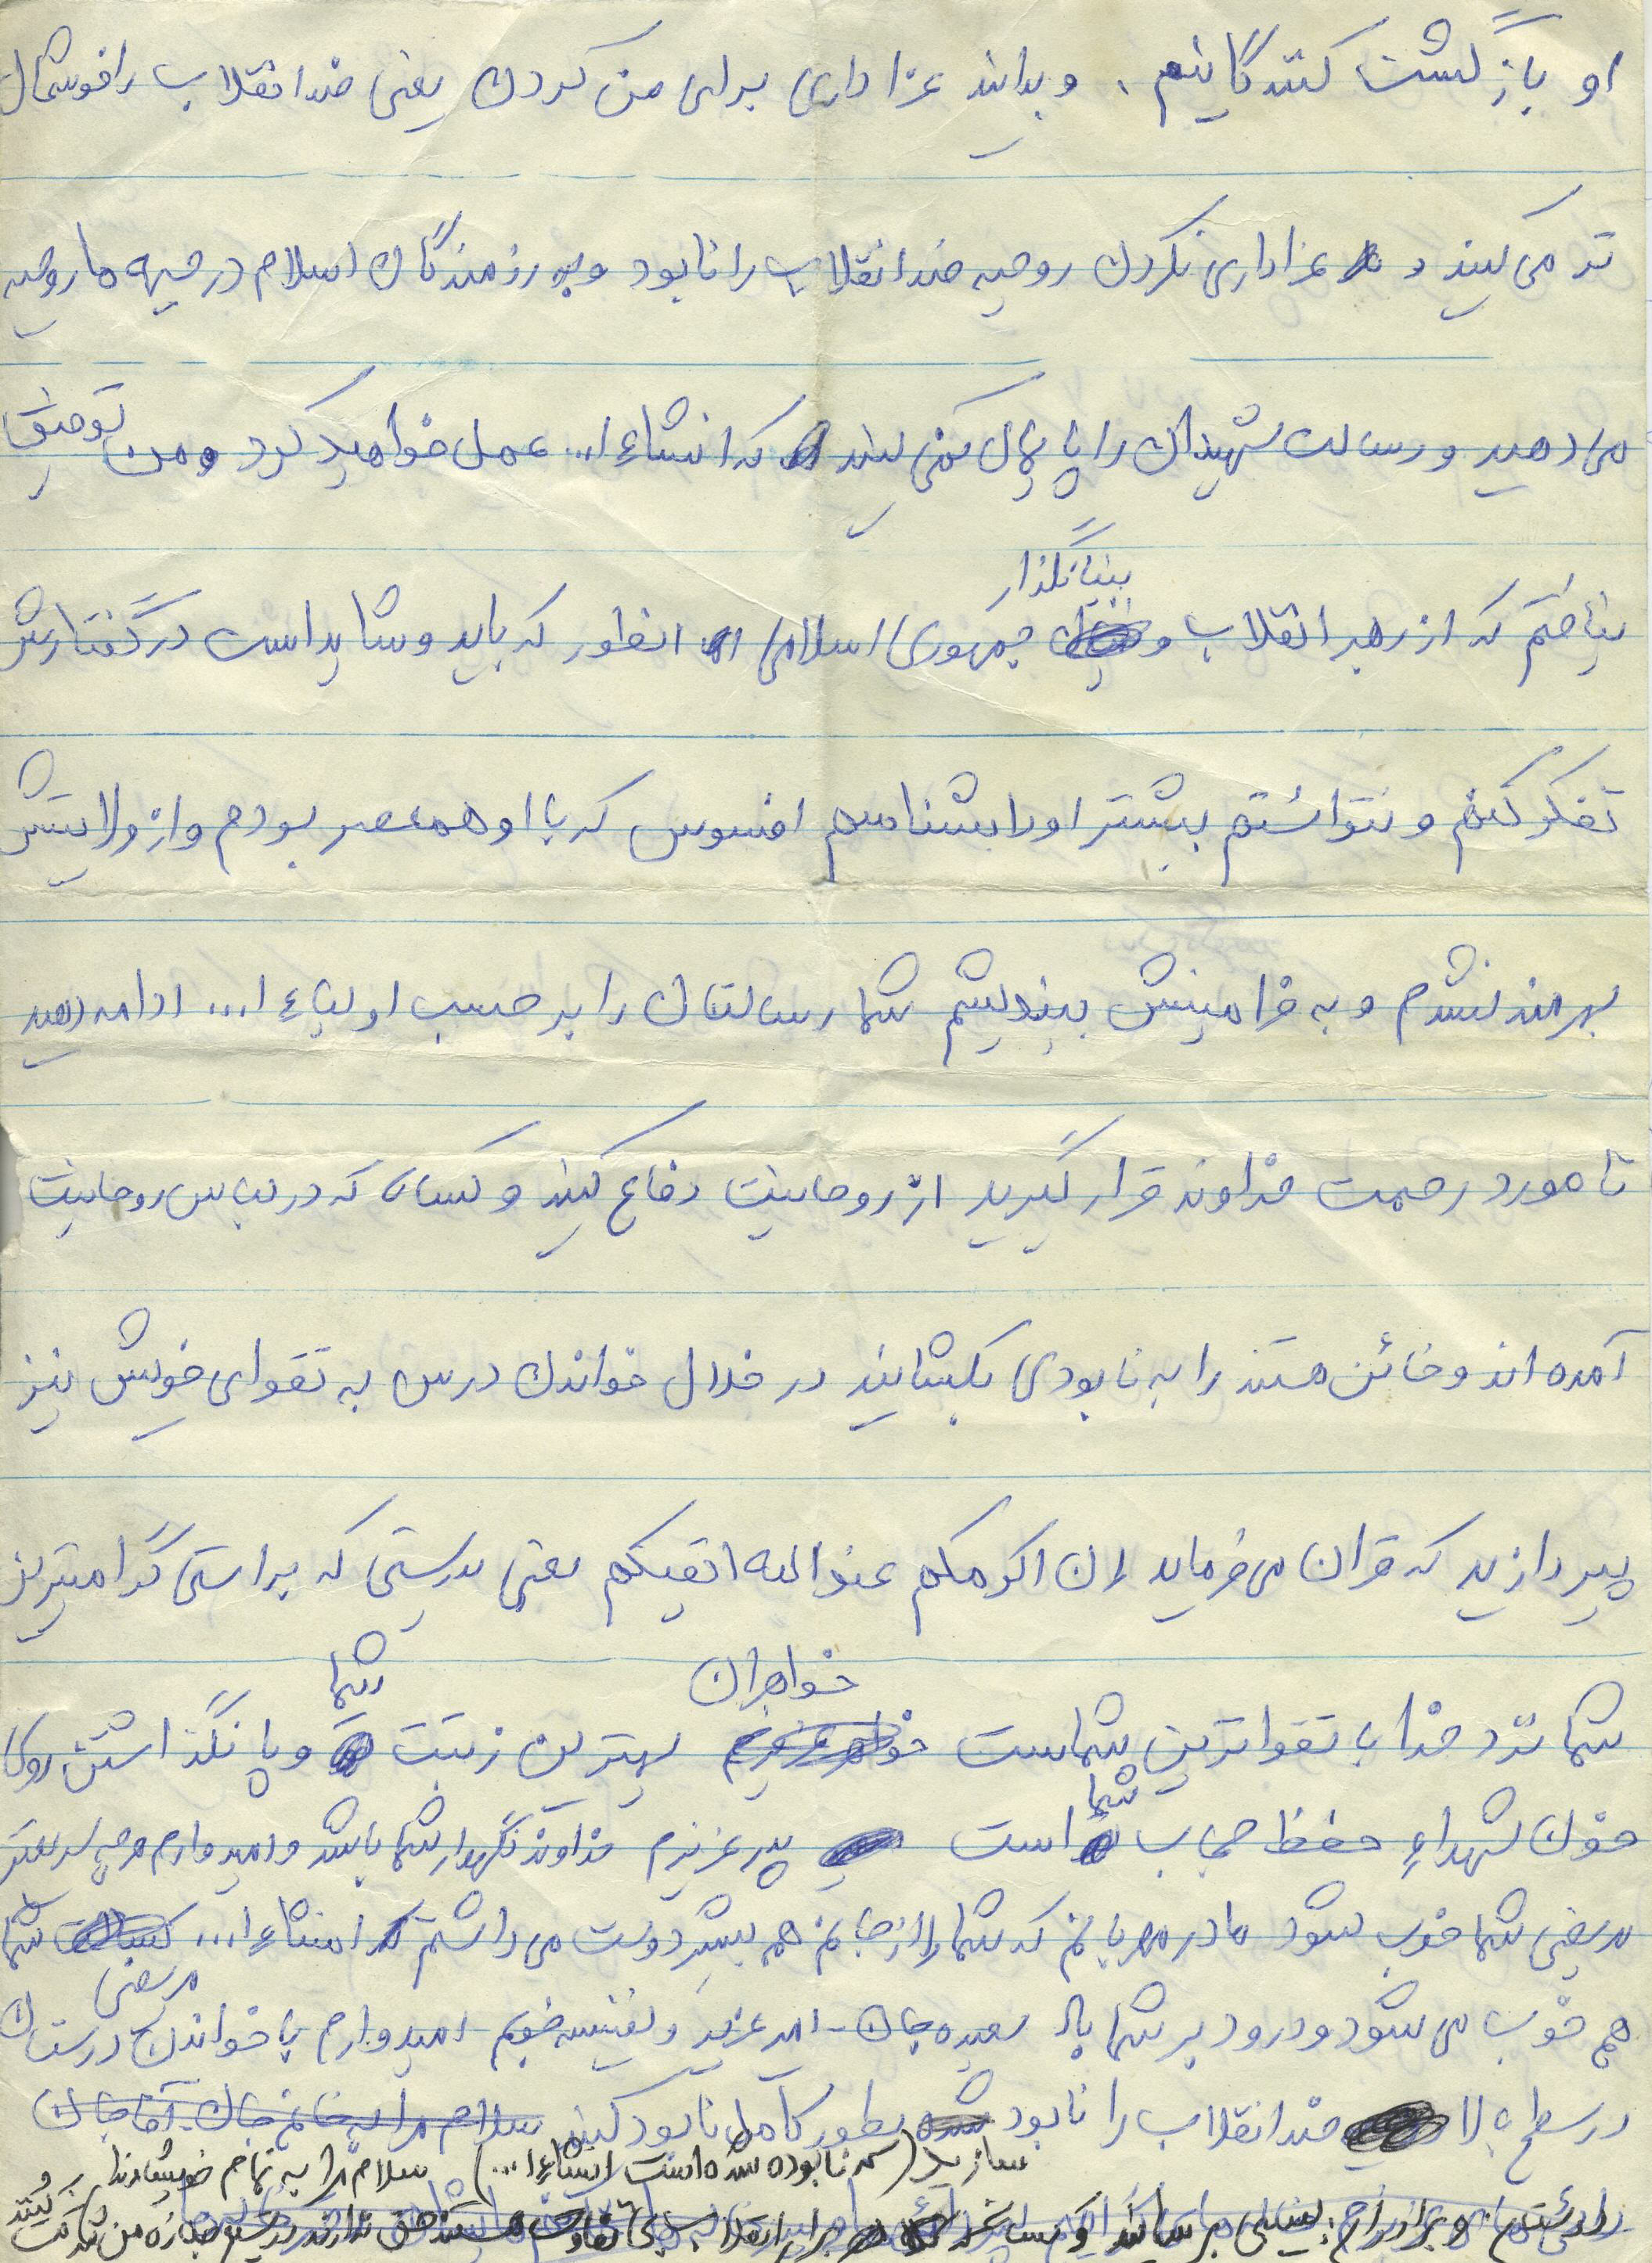 او بازگشت کنندگانیم. و بدانید عزاداری برای من کردن یعنی ضدانقلاب را خوشحال
تر می کنید و عزاداری نکردن روحیه ضدانقلاب را نابود و به رزمندگان اسلام در جبهه ها روحیه
می دهید و رسالت شهیدان را پایمال نمی کنید که انشاءا... عمل خواهید کرد و من توفیق
نیافتم که از رهبر انقلاب و بنیانگذار جمهوری اسلامی انطور که باید و شاید است در گفتارش
تفکر کنم و نتوانستم بیشتر او را بشناسم افسوس که با او هم عصر بودم و از ولایتش
بهرمند نشدم و به فرامینش بیندیشم شما رسالتتان را بر حسب اولیاءا... ادامه دهید
تا مورد رحمت خداوند قرار گیرید از روحانیت دفاع کنید و کسان که در لباس روحانیت
آمده اند و خائن هستند را به نابودی بکشانید در خلال خواندن درس به تقوای خویش نیز
بپردازید که قران می فرماید ان اکرمکم عندالله اتقیکم یعنی بدرستی که براستی گرامیترین
شما نزد خدا با تقواترین شماست خواهران بهترین زینت شما و پا نگذاشتن روی
خون شهداء حفظ حجاب شما است پدر عزیزم خداوند نگهدار شما باشد و امیدوارم هر چه سریعتر
مریضی شما خوب شود مادر مهربانم که شما را از جانم هم بیشتر دوست می داشتم انشاءا... مریضی شما
هم خوب می شود و درود بر شما باد سعیده جان - امیر عزیز و نفیسه خوبم امیدوارم با خواندن درستان
در سطح بالا ضدانقلاب را نابود بطور کامل نابود کنید سلام مرا به خانم جان آقا جان
سازید (که نابوده شده است انشاءا...) سلام مرا به تمام خویشاوندان و
برسانید و کسانی که برابر انقلاب بی تفاوت هستند حق ندارند در تشیع جنازه من شرکت کنند